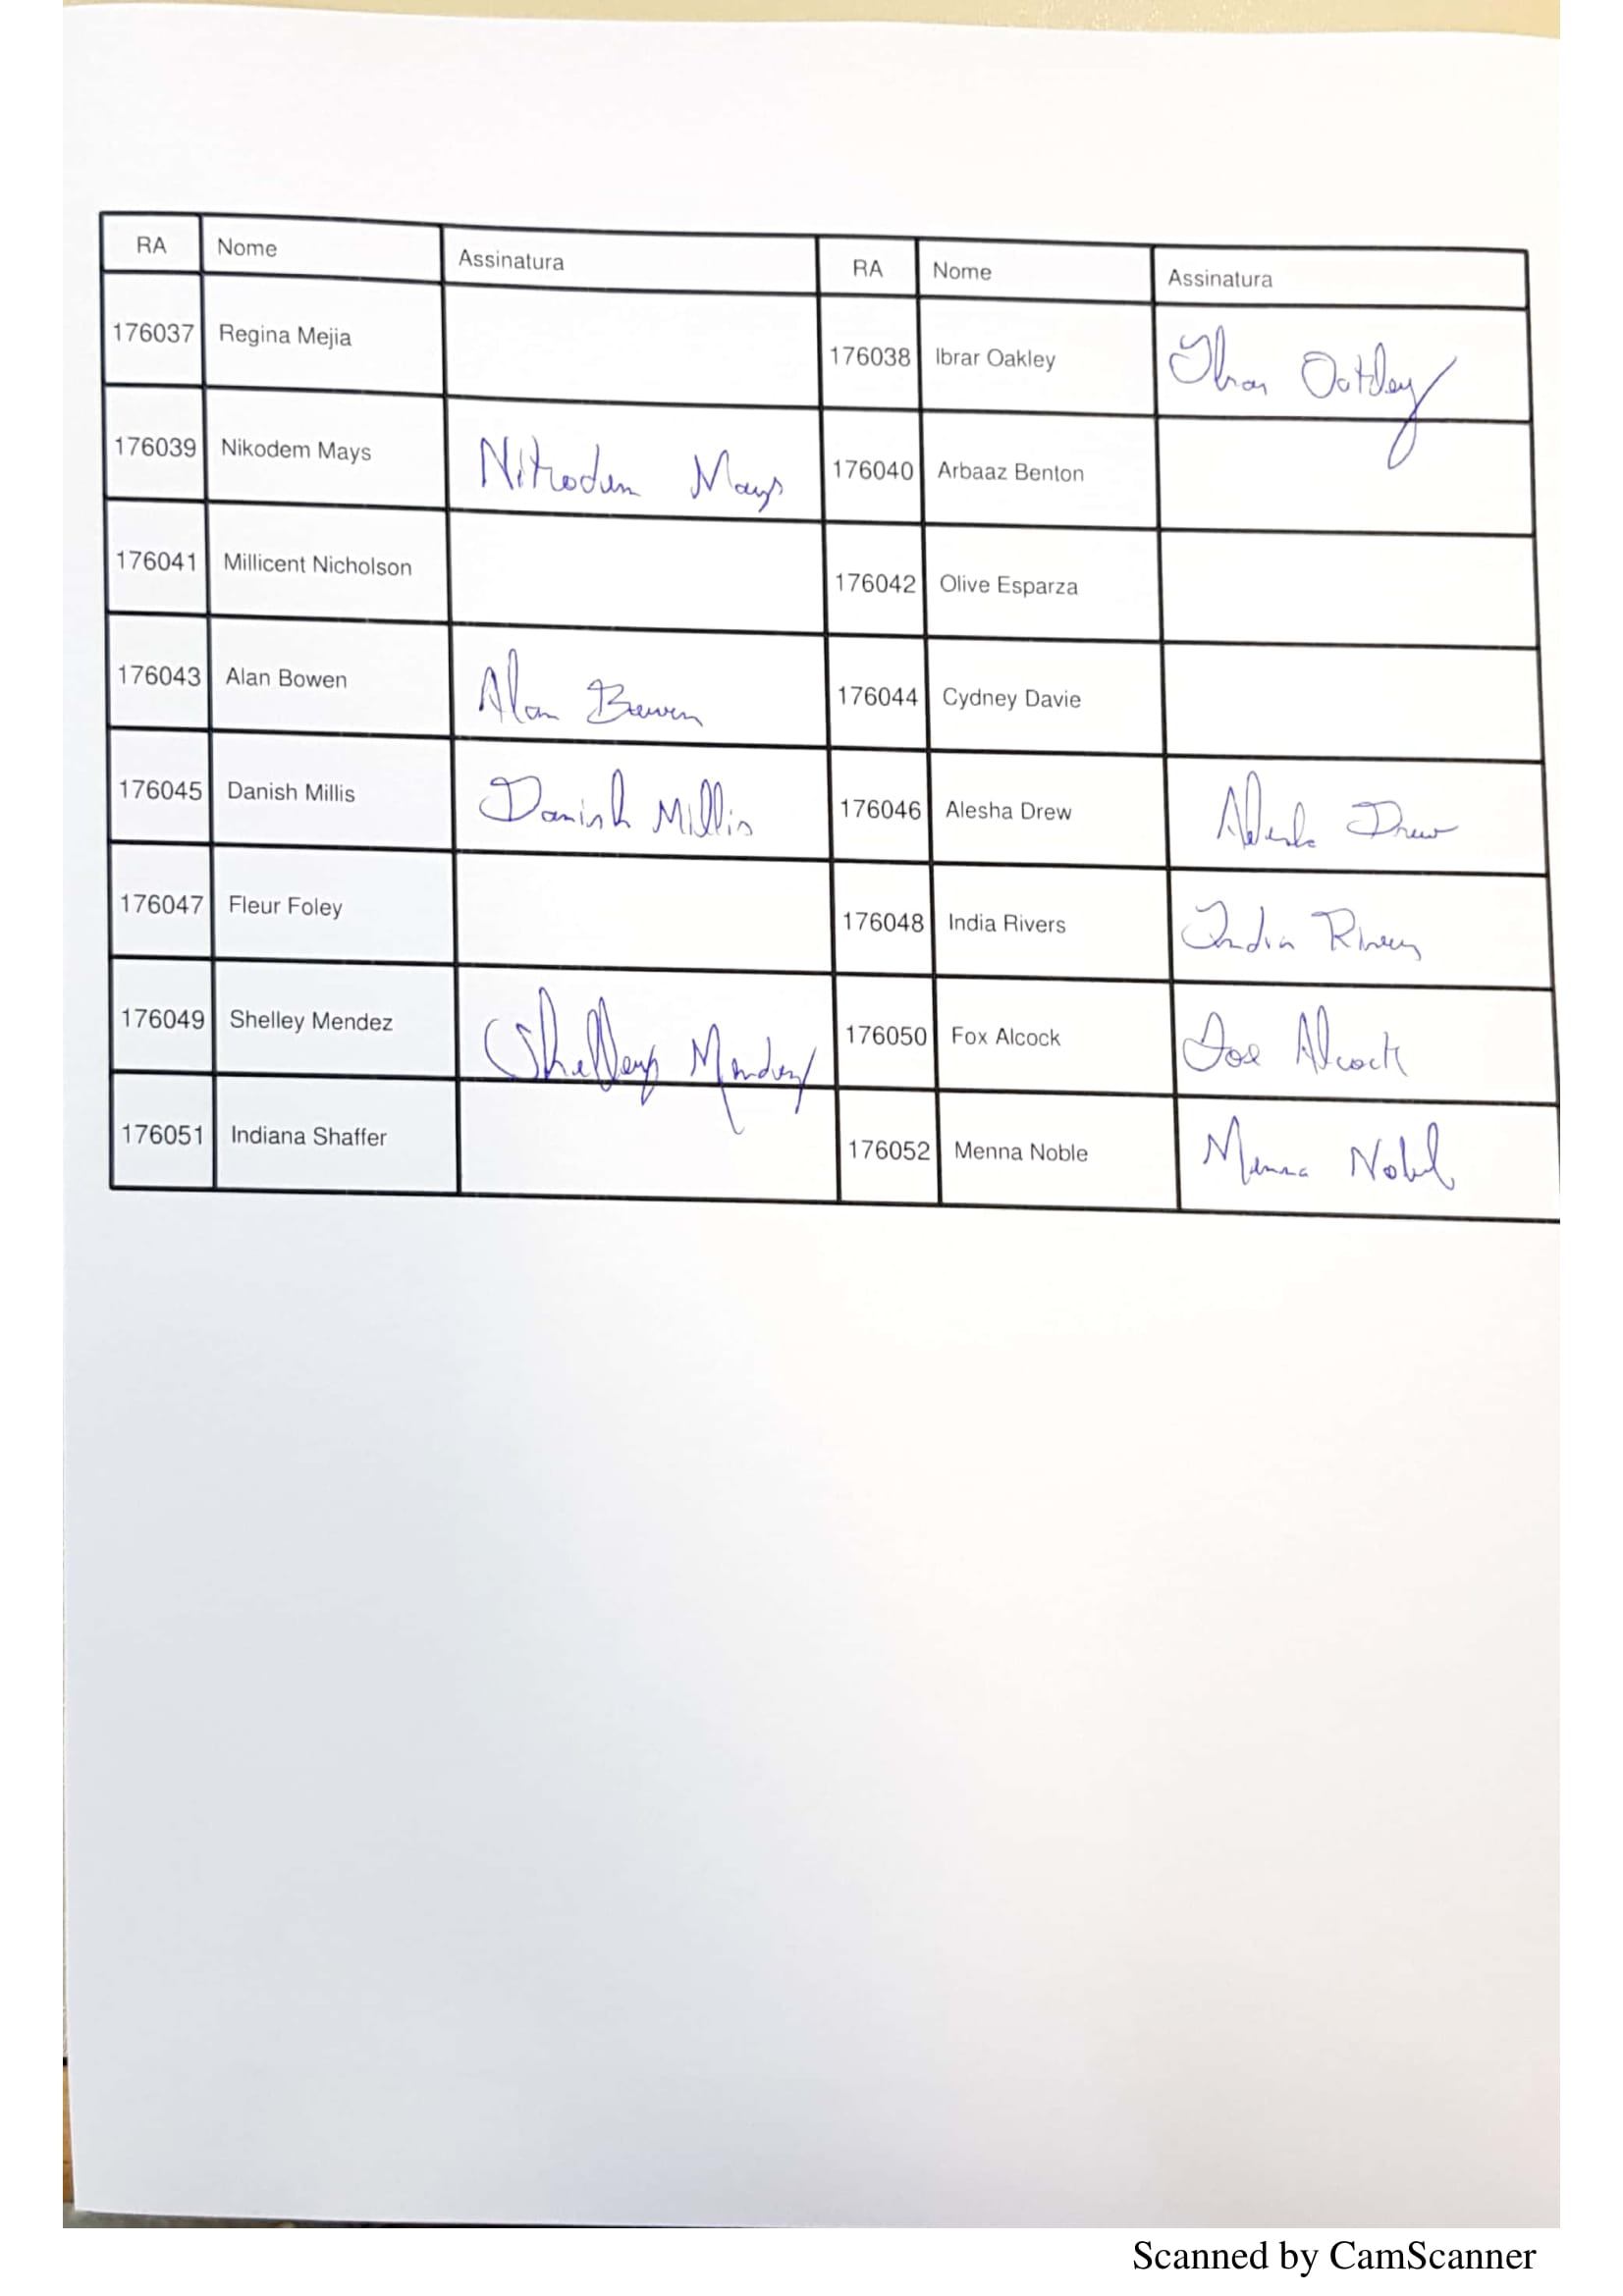 RA Nome Assinatura RA Nome Assinatura
176037 Regina Mejia 176038 Ibrar Oakley Ibrar Oakley
176039 Nikodem Mays Nikodem Mays 176040 Arbaaz Benton
176041 Millicent Nicholson 176042 Olive Esparza
176043 Alan Bowen Alan Bowen 176044 Cydney Davie
176045 Danish Millis Danish Millis 176046 Alesha Drew Alesha Drew
176047 Fleur Foley 176048 India Rivers India Rivers
176049 Shelley Mendez Shelley Mendez 176050 Fox Alcock Fox Alcock
176051 Indiana Shaffer 176052 Menna Noble Menna Noble
Scanned by CamScanner